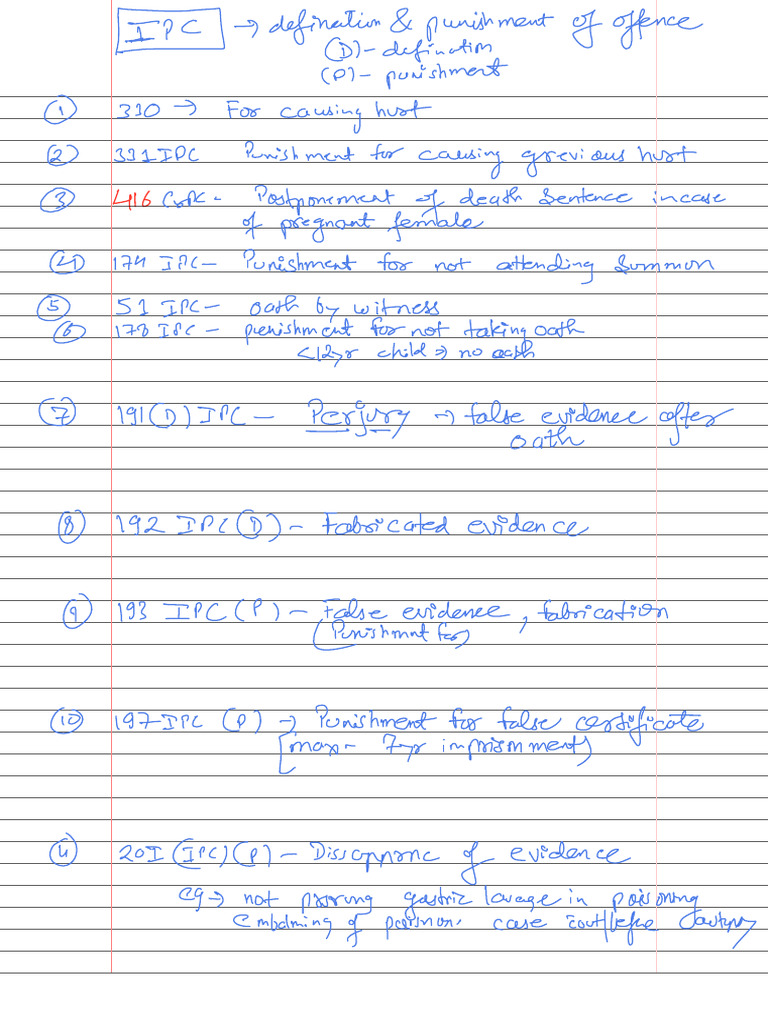 IPC → defination & punishment of offence
(D) - defination
(P) - punishment
① 330 → For causing hurt
② 331 IPC Punishment for causing grevious hurt
③ 416 CrPC - Postponement of death sentence incase
of pregnant female
④ 174 IPC - Punishment for not attending summon
⑤ 51 IPC - oath by witness
⑥ 178 IPC - punishment for not taking oath
<12yr child ⇒ no oath
⑦ 191(D) IPC - Perjury → false evidence after
oath
⑧ 192 IPC (D) - fabricated evidence
⑨ 193 IPC (P) - False evidence, fabrication
(Punishmnt for)
⑩ 197 IPC (P) → Punishment for false certificate
[max - 7yr imprisnment)
⑪ 201 (IPC) (P) - of evidence
eg → not gastric lavage in poisoning
Embalming of case